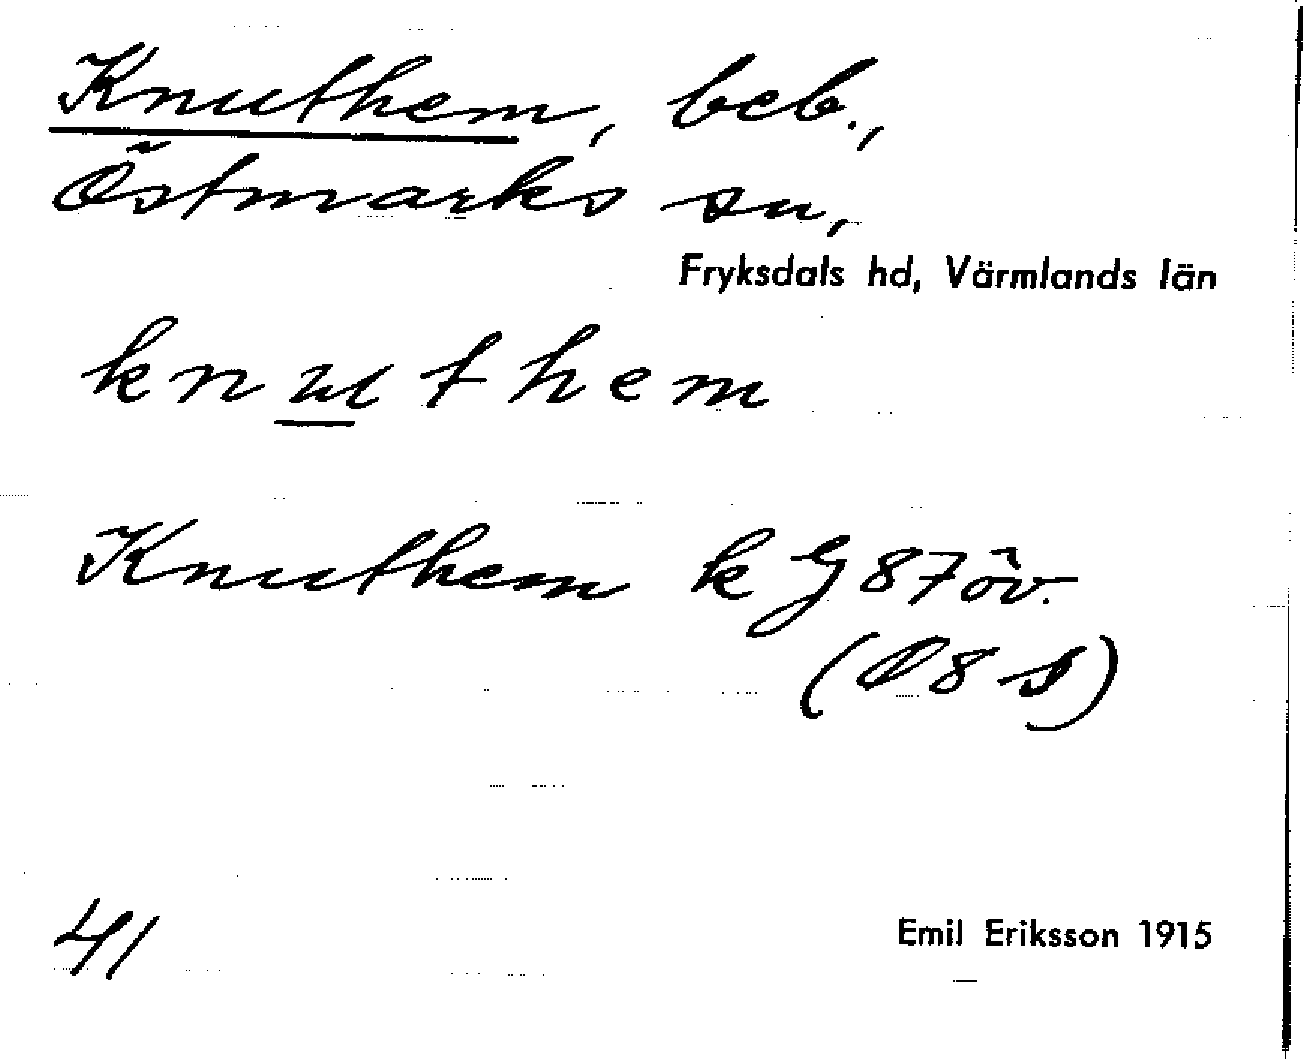 Knuthem, beb.,
Östmarks sn,
Fryksdals hd, Värmlands län
knuthem
Knuthem k G 87 öv.
(O 8 s)
41
Emil Eriksson 1915